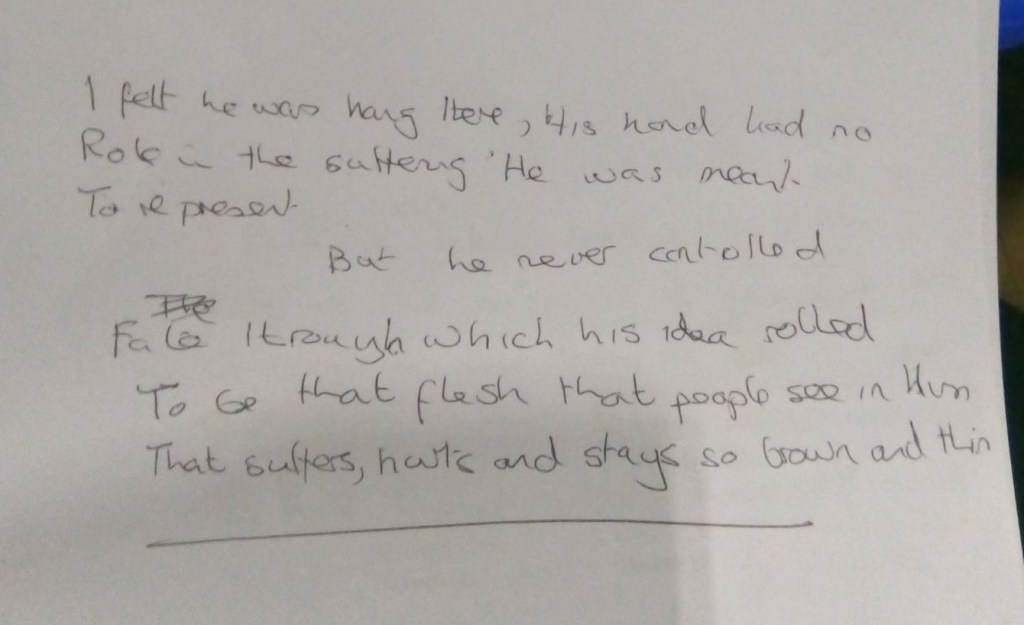 I felt he was hang there, His hand had no
Role in the suffering He was meant
To represent
But he never controlled
The
Fate through which his idea rolled
To be that flesh that people see in Him
That suffers, hurts and stays so brown and thin